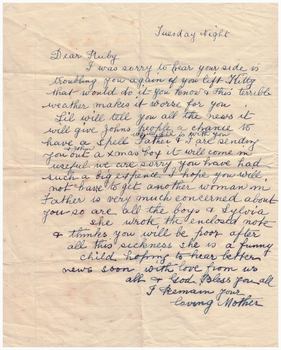 Tuesday Night
Dear Ruby
I was sorry to hear your side is
troubling you again if you left Kitty
that would do it you know & this terrible
weather makes it worse for you
Lil will tell you all the news it
will give Johns people a chance to
have a spell Father & I are sending
you out a Xmas box it will come in
useful we are sorry you have had
such a big expence I hope you will
not have to get another woman in
Father is very much concerned about
you so are all the boys & Sylvia
she wrote the enclosed note
& thinks you will be poor after
all this sickness she is a funny
child hoping to hear better
news soon with love from us
all & God Bless you all
I Remain your
loving Mother